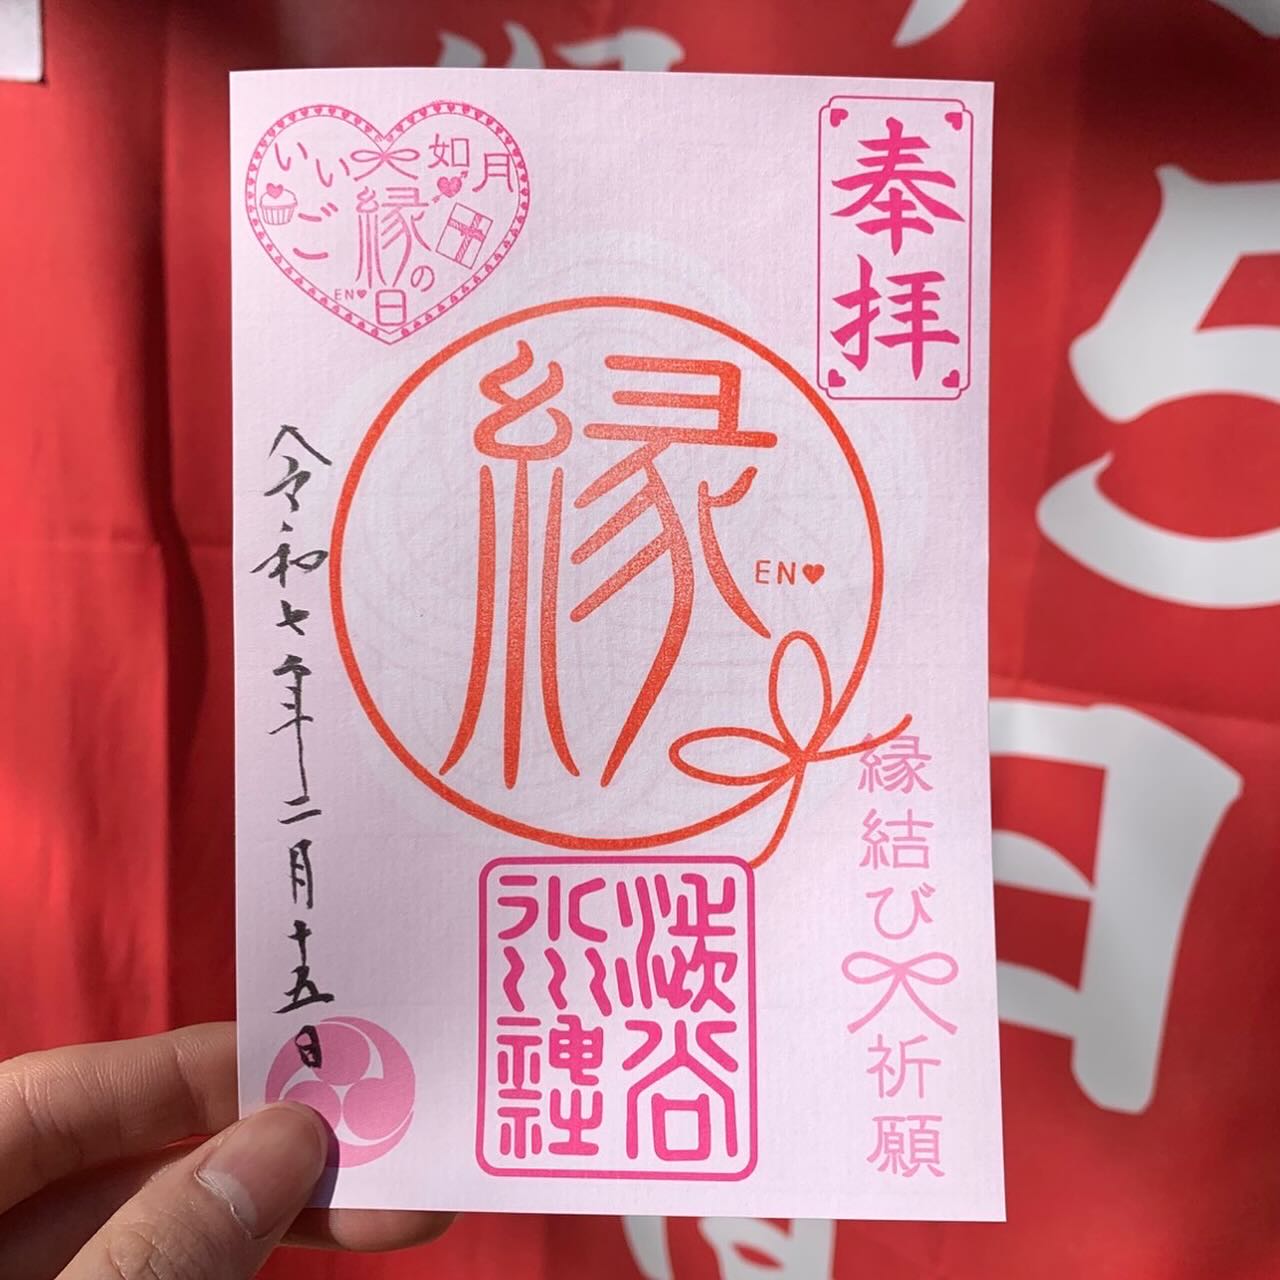 奉拝
縁結び
祈願
縁
EN♥
渋谷
氷川
神社
如月
いいご
縁の日
EN♥
令和七年二月十五日
5
日